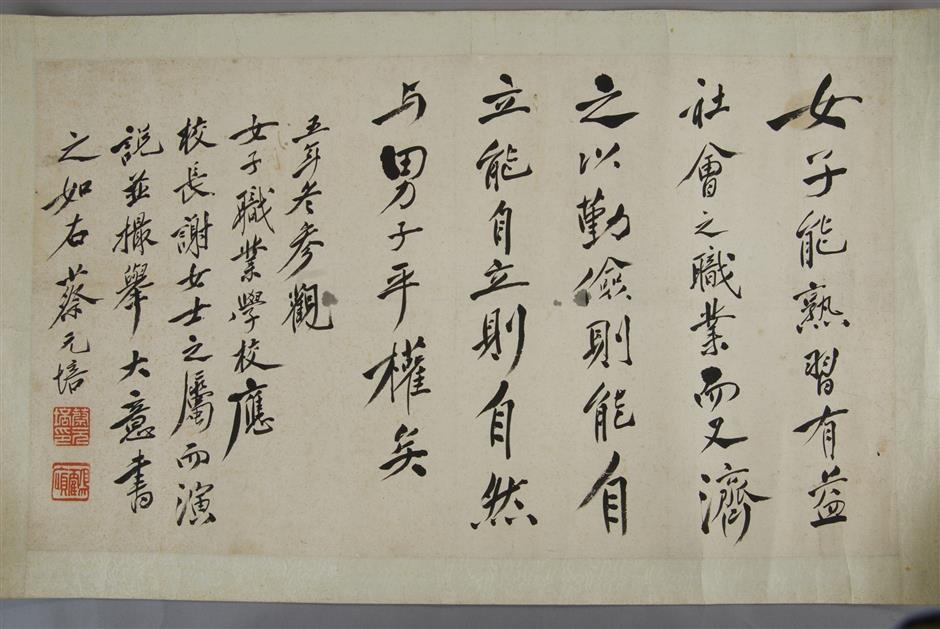 女子能熟習有益
社會之職業而又濟
之以勤儉則能自
立能自立則自然
与男子平權矣
五年冬參觀
女子職業學校應
校長謝女士之屬而演
說並撮舉大意書
之如右蔡元培
蔡元培印